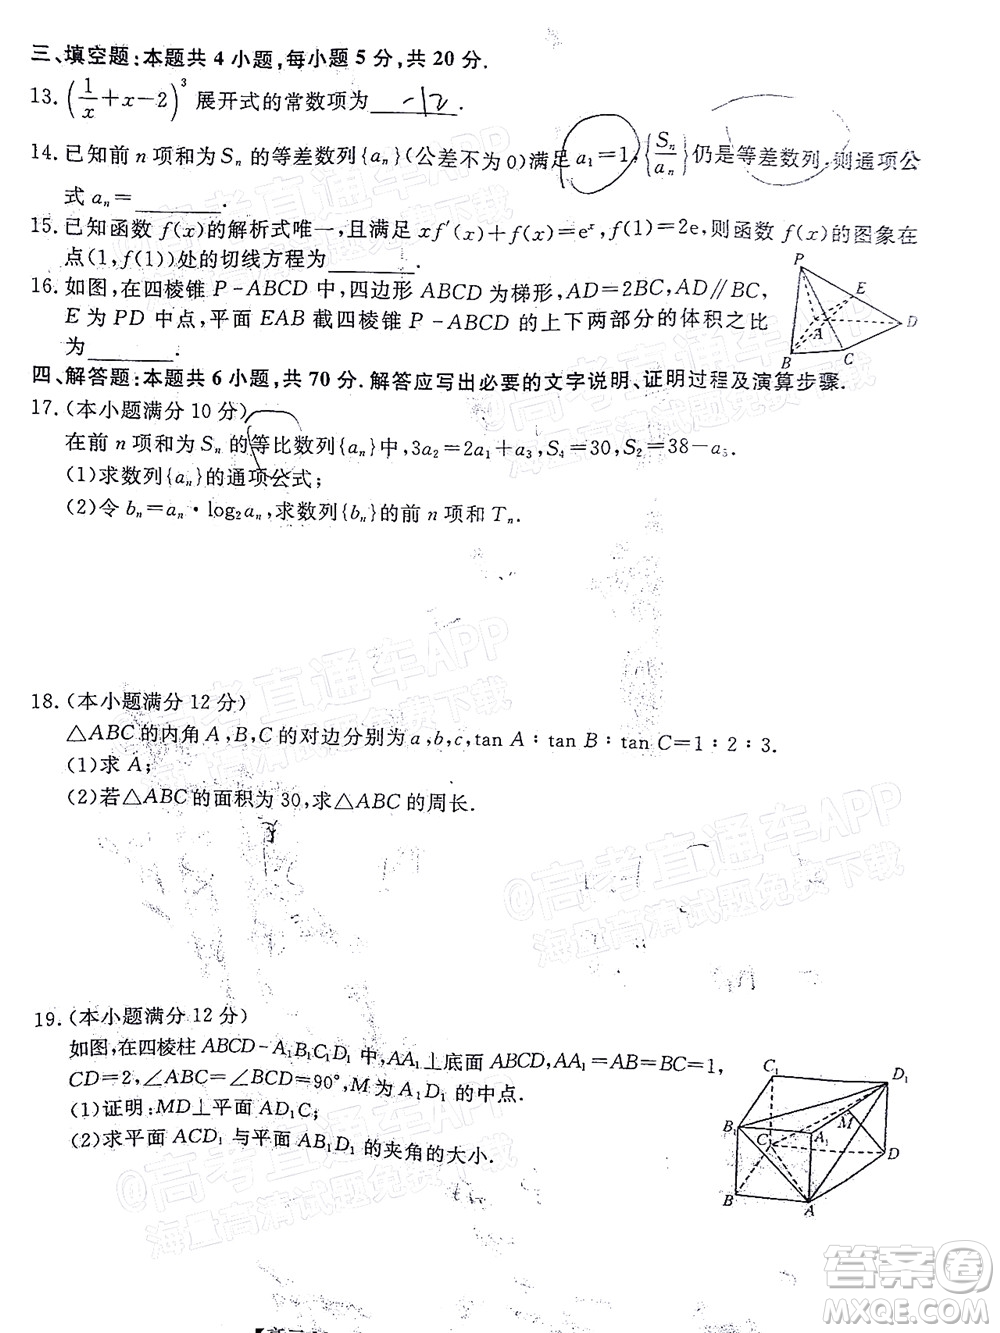 三、填空题:本题共 4 小题,每小题 5 分,共 20 分.
13. (1/x + x − 2)³ 展开式的常数项为 -12 .
14. 已知前 n 项和为 Sₙ 的等差数列{aₙ}(公差不为 0)满足 a₁=1, {Sₙ/aₙ} 仍是等差数列,则通项公
式 aₙ=________.
15. 已知函数 f(x)的解析式唯一,且满足 xf′(x)+f(x)=eˣ, f(1)=2e,则函数 f(x)的图象在
点(1, f(1))处的切线方程为________.
16. 如图,在四棱锥 P-ABCD 中,四边形 ABCD 为梯形, AD=2BC, AD∥BC,
E 为 PD 中点,平面 EAB 截四棱锥 P-ABCD 的上下两部分的体积之比
为________.
P
E
A
D
B
C
四、解答题:本题共 6 小题,共 70 分.解答应写出必要的文字说明、证明过程及演算步骤.
17. (本小题满分 10 分)
在前 n 项和为 Sₙ 的等比数列{aₙ}中,3a₂=2a₁+a₃, S₄=30, S₂=38-a₅.
(1)求数列{aₙ}的通项公式;
(2)令 bₙ=aₙ·log₂aₙ,求数列{bₙ}的前 n 项和 Tₙ.
18. (本小题满分 12 分)
△ABC 的内角 A,B,C 的对边分别为 a,b,c,tan A:tan B:tan C=1:2:3.
(1)求 A;
(2)若△ABC 的面积为 30,求△ABC 的周长.
19. (本小题满分 12 分)
如图,在四棱柱 ABCD-A₁B₁C₁D₁ 中,AA₁⊥底面 ABCD,AA₁=AB=BC=1,
CD=2,∠ABC=∠BCD=90°, M 为 A₁D₁ 的中点.
(1)证明:MD⊥平面 AD₁C;
(2)求平面 ACD₁ 与平面 AB₁D₁ 的夹角的大小.
C₁
D₁
B₁
A₁
M
C
D
B
A
@高考直通车APP
海量高清试题免费下载
@高考直通车APP
海量高清试题免费下载
@高考直通车APP
海量高清试题免费下载
答案卷
MXQE.COM